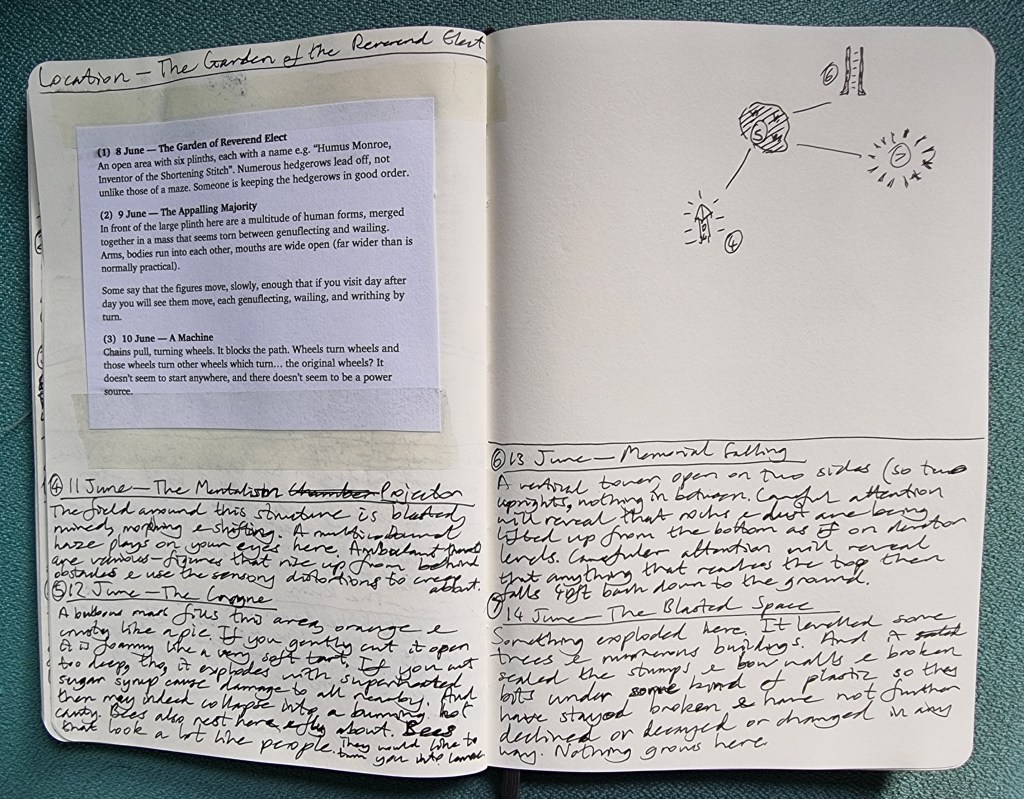 Location — The Garden of the Reverend Elect
(1) 8 June — The Garden of Reverend Elect
An open area with six plinths, each with a name e.g. “Humus Monroe,
Inventor of the Shortening Stitch”. Numerous hedgerows lead off, not
unlike those of a maze. Someone is keeping the hedgerows in good order.
(2) 9 June — The Appalling Majority
In front of the large plinth here are a multitude of human forms, merged
together in a mass that seems torn between genuflecting and wailing.
Arms, bodies run into each other, mouths are wide open (far wider than is
normally practical).
Some say that the figures move, slowly, enough that if you visit day after
day you will see them move, each genuflecting, wailing, and writhing by
turn.
(3) 10 June — A Machine
Chains pull, turning wheels. It blocks the path. Wheels turn wheels and
those wheels turn other wheels which turn... the original wheels? It
doesn't seem to start anywhere, and there doesn't seem to be a power
source.
④ 11 June — The Mentalism Chamber Projector
The field around this structure is blasted,
mined, morphing & shifting. A multi
haze plays on your eyes here.
are various figures that rise up from behind
obstacles & use the sensory distortions to creep
about.
⑤ 12 June — The
A bulbous mass fills this area, orange &
crusty like a pie. If you gently cut it open
it is foamy like a very soft tart. If you cut
too deep, tho, it explodes with superheated
sugar syrup cause damage to all nearby. And
then may indeed collapse into a burning hot
cavity. Bees also nest here & fly about. Bees
that look a lot like people. They would like to
turn you into
6
5
7
4
⑥ 13 June — Memorial Falling
A vertical tower, open on two sides (so two
uprights, nothing in between. Careful attention
will reveal that rocks & dust are being
lifted up from the bottom as if on elevator
levels. Carefuler attention will reveal
that anything that reaches the top then
falls back down to the ground.
⑦ 14 June — The Blasted Space
Something exploded here. It levelled some
trees & numerous buildings. And A
sealed the stumps & low walls & broken
bits under some kind of plastic so they
have stayed broken & have not further
declined or decayed or changed in any
way. Nothing grows here.